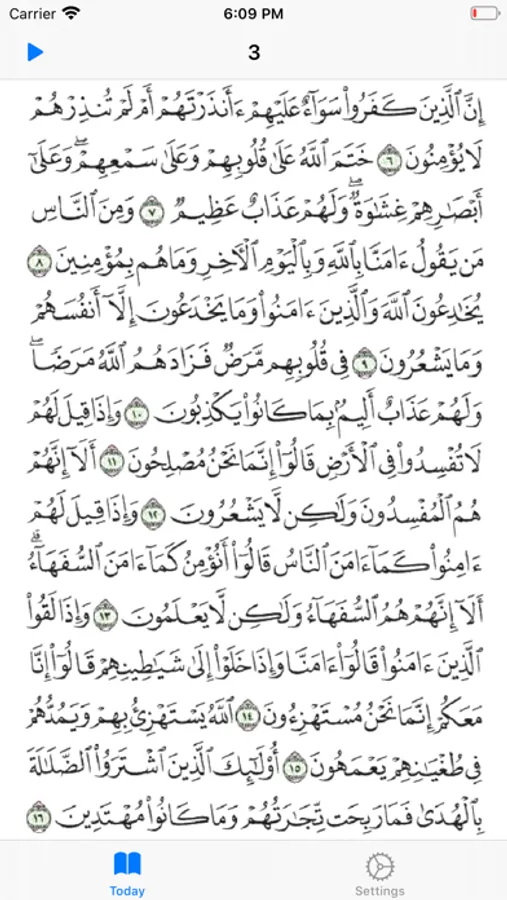 Carrier 6:09 PM
3
إِنَّ ٱلَّذِينَ كَفَرُوا۟ سَوَآءٌ عَلَيْهِمْ ءَأَنذَرْتَهُمْ أَمْ لَمْ تُنذِرْهُمْ
لَا يُؤْمِنُونَ ٦ خَتَمَ ٱللَّهُ عَلَىٰ قُلُوبِهِمْ وَعَلَىٰ سَمْعِهِمْ ۖ وَعَلَىٰٓ
أَبْصَـٰرِهِمْ غِشَـٰوَةٌ ۖ وَلَهُمْ عَذَابٌ عَظِيمٌ ٧ وَمِنَ ٱلنَّاسِ
مَن يَقُولُ ءَامَنَّا بِٱللَّهِ وَبِٱلْيَوْمِ ٱلْـَٔاخِرِ وَمَا هُم بِمُؤْمِنِينَ ٨
يُخَـٰدِعُونَ ٱللَّهَ وَٱلَّذِينَ ءَامَنُوا۟ وَمَا يَخْدَعُونَ إِلَّآ أَنفُسَهُمْ
وَمَا يَشْعُرُونَ ٩ فِى قُلُوبِهِم مَّرَضٌ فَزَادَهُمُ ٱللَّهُ مَرَضًا ۖ
وَلَهُمْ عَذَابٌ أَلِيمٌۢ بِمَا كَانُوا۟ يَكْذِبُونَ ١٠ وَإِذَا قِيلَ لَهُمْ
لَا تُفْسِدُوا۟ فِى ٱلْأَرْضِ قَالُوٓا۟ إِنَّمَا نَحْنُ مُصْلِحُونَ ١١ أَلَآ إِنَّهُمْ
هُمُ ٱلْمُفْسِدُونَ وَلَـٰكِن لَّا يَشْعُرُونَ ١٢ وَإِذَا قِيلَ لَهُمْ
ءَامِنُوا۟ كَمَآ ءَامَنَ ٱلنَّاسُ قَالُوٓا۟ أَنُؤْمِنُ كَمَآ ءَامَنَ ٱلسُّفَهَآءُ ۗ
أَلَآ إِنَّهُمْ هُمُ ٱلسُّفَهَآءُ وَلَـٰكِن لَّا يَعْلَمُونَ ١٣ وَإِذَا لَقُوا۟
ٱلَّذِينَ ءَامَنُوا۟ قَالُوٓا۟ ءَامَنَّا وَإِذَا خَلَوْا۟ إِلَىٰ شَيَـٰطِينِهِمْ قَالُوٓا۟ إِنَّا
مَعَكُمْ إِنَّمَا نَحْنُ مُسْتَهْزِءُونَ ١٤ ٱللَّهُ يَسْتَهْزِئُ بِهِمْ وَيَمُدُّهُمْ
فِى طُغْيَـٰنِهِمْ يَعْمَهُونَ ١٥ أُو۟لَـٰٓئِكَ ٱلَّذِينَ ٱشْتَرَوُا۟ ٱلضَّلَـٰلَةَ
بِٱلْهُدَىٰ فَمَا رَبِحَت تِّجَـٰرَتُهُمْ وَمَا كَانُوا۟ مُهْتَدِينَ ١٦
Today Settings